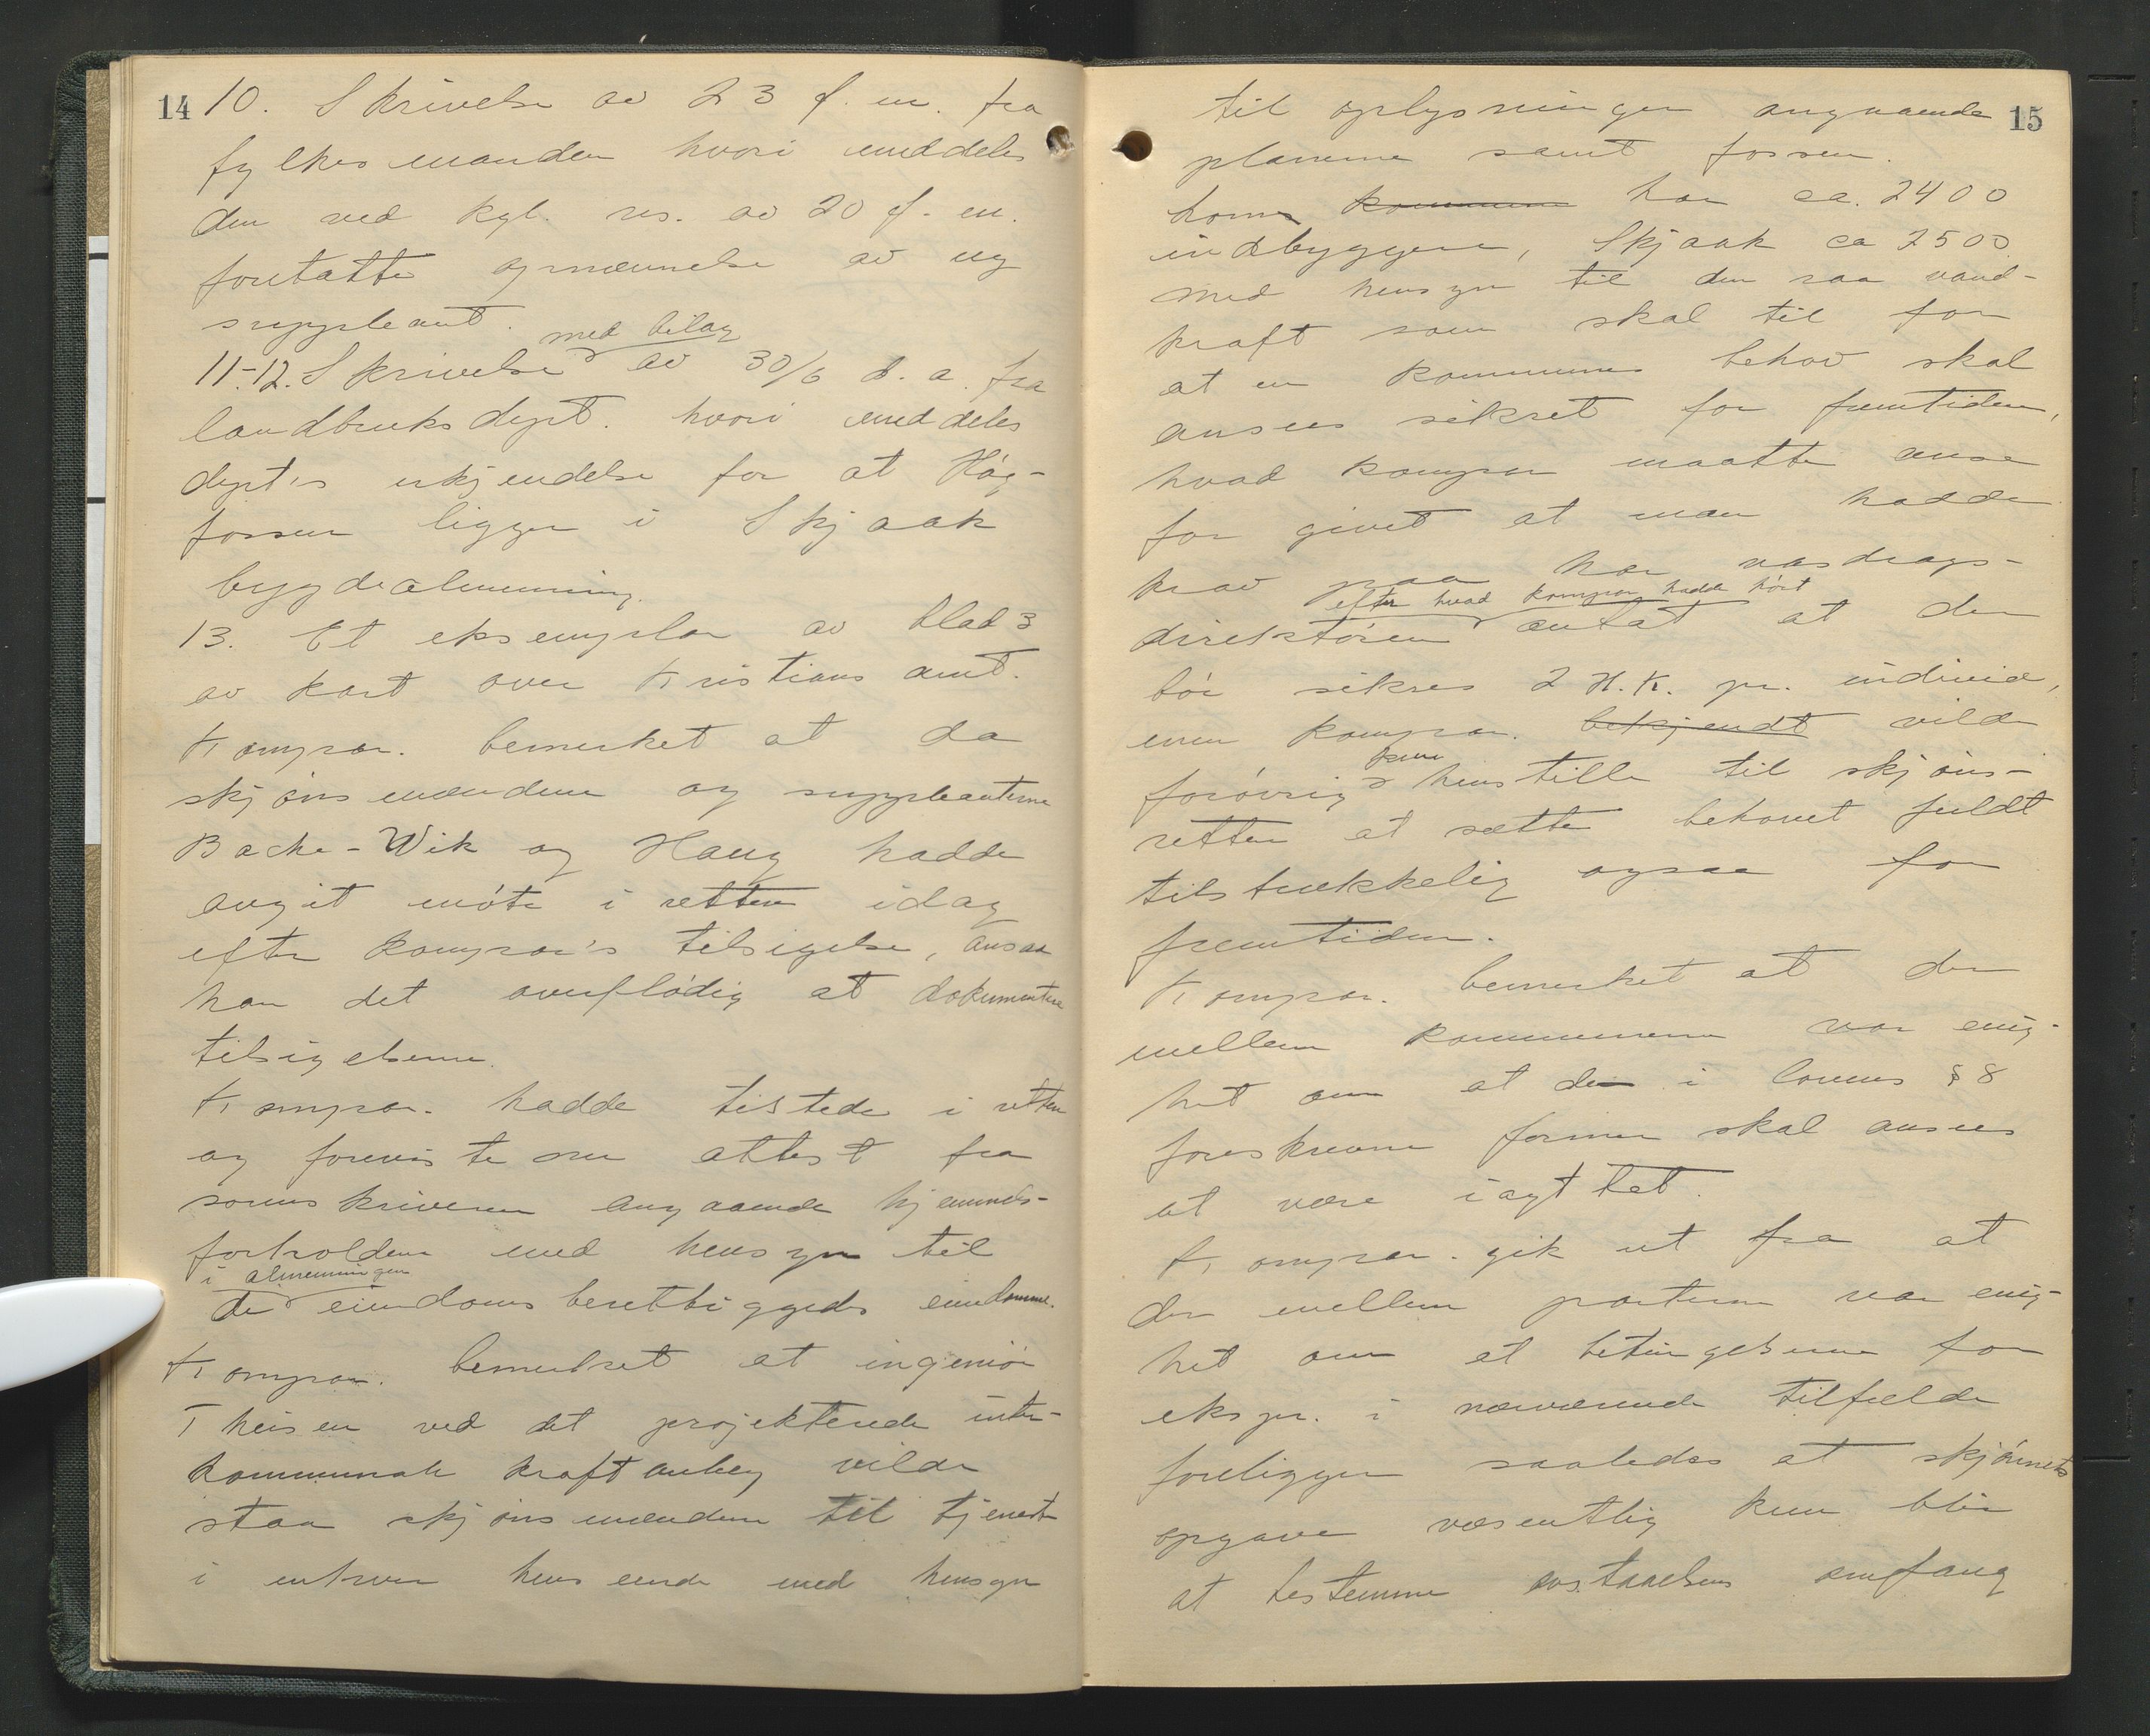 14
10. Skrivelse av 23 f. m. fra
fylkesmanden hvori meddeles
den ved kgl. res. av 20 f. m.
foretatte opnævnelse av ny
suppleant.
med bilag
11-12. Skrivelse av 30/6 d. a. fra
landbruksdept. hvori meddeles
dept's erkjendelse for at Høg-
fossen ligger i Skjaak
bygdealmenning.
13. Et eksemplar av blad 3
av kart over Kristians amt.
Kompar. bemerket at da
skjønsmændene og suppleanterne
Bache-Wik og Haug hadde
avgit møte i retten idag
efter kompar's tilsigelse, ansaa
han det overflødig at dokumentere
tilsigelserne.
Kompar. hadde tilstede i retten
og foreviste en attest fra
sorenskriveren angaaende hjemmels-
forholdene med hensyn til
i almenningen
de eiendomsberettiggede eiendomme.
Kompar. bemerket at ingeniør
Theisen ved det projekterede inter-
kommunale kraftanlæg vilde
staa skjønsmændene til tjeneste
i enhver henseende med hensyn
15
til oplysninger angaaende
planerne samt fossen.
Lom kommune har ca. 2400
indbyggere, Skjaak ca 2500.
Med hensyn til den raa vand-
kraft som skal til for
at en kommunes behov skal
ansees sikret for fremtiden,
hvad kompar maatte anse
for givet at man hadde
krav paa har vasdrags-
efter hvad kompar hadde hørt
direktøren antat at der
bør sikres 2 H.K. pr. individ,
men kompar. bekjendt vilde
kun
forøvrig henstille til skjøns-
retten at sætte behovet fuldt
tilstrækkelig ogsaa for
fremtiden.
Kompar. bemerket at der
mellem kommunerne var enig-
het om at de i lovens § 8
foreskrevne former skal ansees
at være iagttat.
Kompar. gik ut fra at
der mellem parterne var enig-
het om at betingelserne for
ekspr. i nærværende tilfælde
foreligger saaledes at skjønnets
opgave væsentlig kun blir
at bestemme avstaaelsens omfang